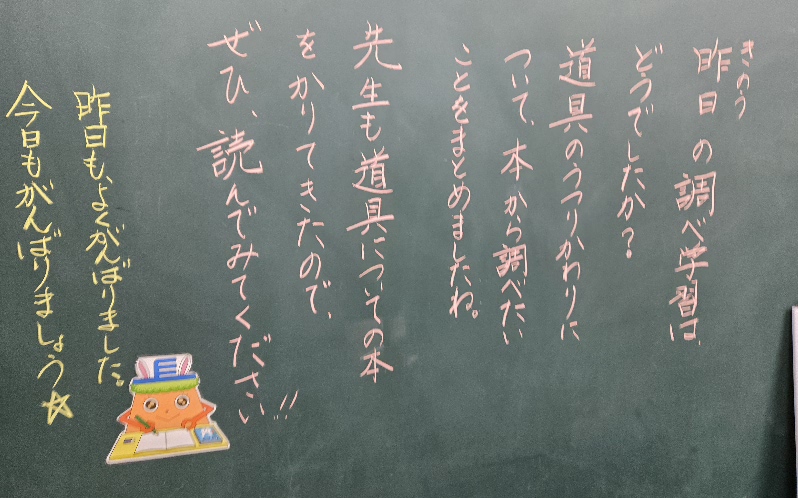 きのう
昨日の調べ学習は、
どうでしたか？
道具のうつりかわりに
ついて、本から調べたい
ことをまとめましたね。
先生も道具についての本
をかりてきたので、
ぜひ、読んでみてください!!
昨日も、よくがんばりました。
今日もがんばりましょう☆